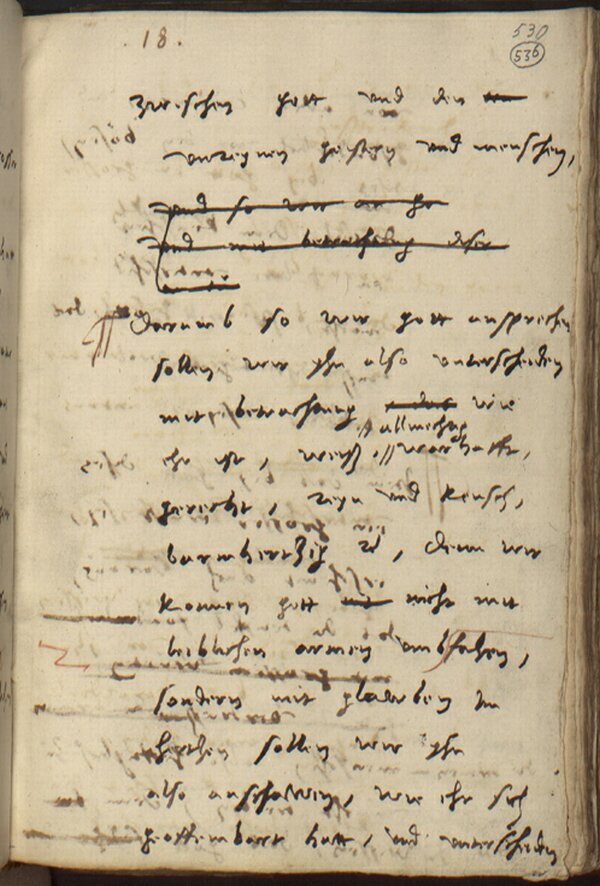 18.
530
536
zwischen gott und den
unreynen geistern und menschen,
und so wir an
und mit betrachtung diser
Darumb so wir gott ansprechen
sollen wir yhn also unterscheiden
mit betrachtung wie
allmechtig
ehr ist, weiß, warhafft,
gerecht, reyn und keusch,
barmhertzig, denn wir
konnen gott nicht mit
leiblichen armen umbfahen,
sondern mit glawben im
hertzen sollen wir yhn
also anschawen, wie ehr sich
geoffembart hatt, und unterscheiden